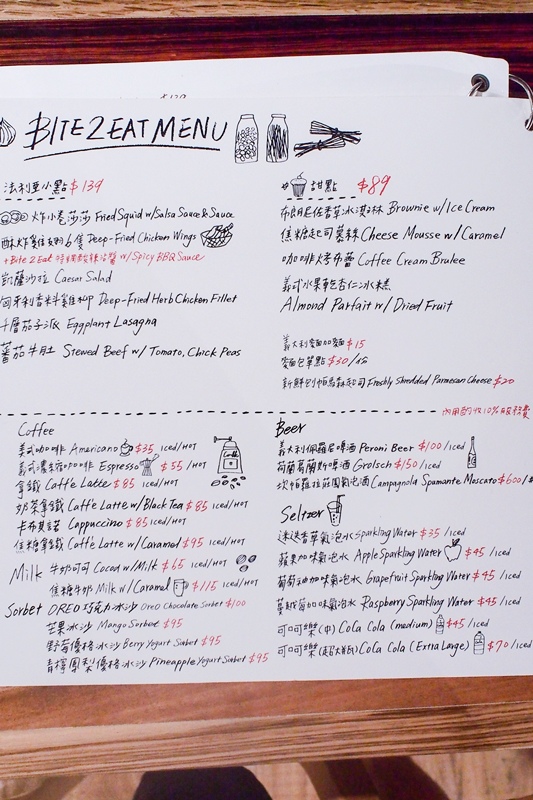 BITE2EAT MENU
法利亞小點 $139
炸小卷莎莎 Fried Squid w/Salsa Sauce & Sauce
酥炸雞翅 6隻 Deep-Fried Chicken Wings
+Bite2Eat 特調酸辣沾醬 w/Spicy BBQ Sauce
凱薩沙拉 Caesar Salad
匈牙利香料雞柳 Deep-Fried Herb Chicken Fillet
千層茄子派 Eggplant Lasagna
蕃茄牛肚 Stewed Beef w/ Tomato, Chick Peas
甜點 $89
布朗尼佐香草冰淇淋 Brownie w/Ice Cream
焦糖起司慕絲 Cheese Mousse w/Caramel
咖啡烤布蕾 Coffee Cream Brulee
義式水果乾杏仁冰糕
Almond Parfait w/ Dried Fruit
義大利麵加麵 $15
麵包單點 $30/份
新鮮刨帕瑪森起司 Freshly Shredded Parmesan Cheese $20
內用酌收10%服務費
Coffee
美式咖啡 Americano $35 iced/HOT
義式濃縮咖啡 Espresso $55 /HOT
拿鐵 Caffè Latte $85 iced/HOT
奶茶拿鐵 Caffè Latte w/Black Tea $85 iced/HOT
卡布其諾 Cappuccino $85 iced/HOT
焦糖拿鐵 Caffè Latte w/Caramel $95 iced/HOT
Milk 牛奶可可 Cocoa w/Milk $65 iced/HOT
焦糖牛奶 Milk w/Caramel $115 iced/HOT
Sorbet OREO巧克力冰沙 Oreo Chocolate Sorbet $100
芒果冰沙 Mango Sorbet $95
野莓優格冰沙 Berry Yogurt Sorbet $95
青檸鳳梨優格冰沙 Pineapple Yogurt Sorbet $95
Beer
義大利佩羅尼啤酒 Peroni Beer $100/iced
荷蘭葛蘭斯啤酒 Grolsch $150/iced
坎帕羅拉莊園氣泡酒 Campagnola Spumante Moscato $600/
Seltzer
淡香草氣泡水 Sparkling Water $35 /iced
蘋果加味氣泡水 Apple Sparkling Water $45 /iced
葡萄柚加味氣泡水 Grapefruit Sparkling Water $45 /iced
蔓越莓加味氣泡水 Raspberry Sparkling Water $45 /iced
可口可樂(中) Coca Cola (medium) $45/iced
可口可樂(超大瓶) Coca Cola (Extra Large) $70/iced